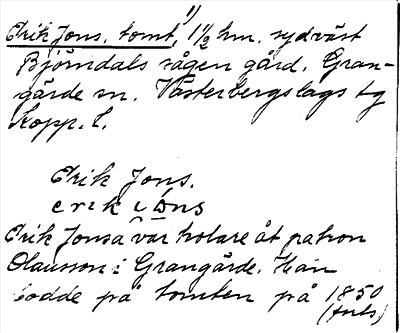 Erik Jons. tomt, 1) 1 1/2 km. sydväst
Björndals sågen gård. Gran-
gärde sn. Västerbergslags tg
Kopp. L.
Erik Jons.
Erik Jonsa var kolare åt patron
Olausson i Grangärde. Han
bodde på tomten på 1850
(forts)